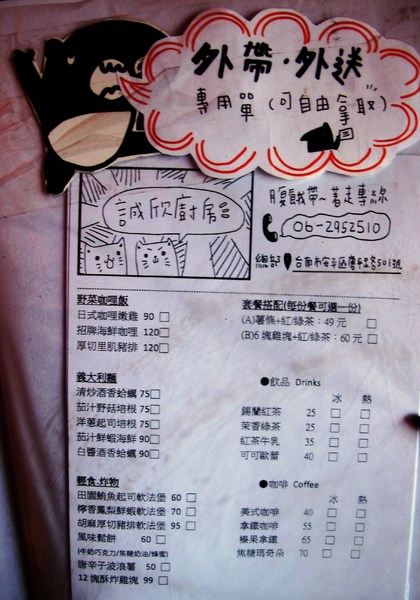 外帶·外送
專用單(可自由拿取)
誠欣廚房
腹餓帶~著走專線
06-2952510
台南市安平區慶平路501號
野菜咖哩飯
日式咖哩嫩雞 90 □
招牌海鮮咖哩 120 □
厚切里肌豬排 120 □
套餐搭配(每份餐可選一份)
(A)薯條+紅/綠茶:49 元 □
(B)6 塊雞塊+紅/綠茶:60 元 □
義大利麵
清炒酒香蛤蠣 75 □
茄汁野菇培根 75 □
洋蔥起司培根 75 □
茄汁鮮蝦海鮮 90 □
白醬酒香蛤蠣 90 □
●飲品 Drinks
冰 熱
錫蘭紅茶 25 □ □
茉香綠茶 25 □ □
紅茶牛乳 35 □ □
可可歐蕾 40 □ □
輕食.炸物
田園鮪魚起司軟法堡 60 □
檸香鳳梨鮮蝦軟法堡 70 □
胡麻厚切豬排軟法堡 95 □
風味鬆餅 60 □
(牛奶巧克力/焦糖奶油/蜂蜜)
唐辛子波浪薯 50 □
12 塊酥炸雞塊 99 □
●咖啡 Coffee
冰 熱
美式咖啡 40 □ □
拿鐵咖啡 55 □ □
榛果拿鐵 65 □ □
焦糖瑪奇朵 70 □ □